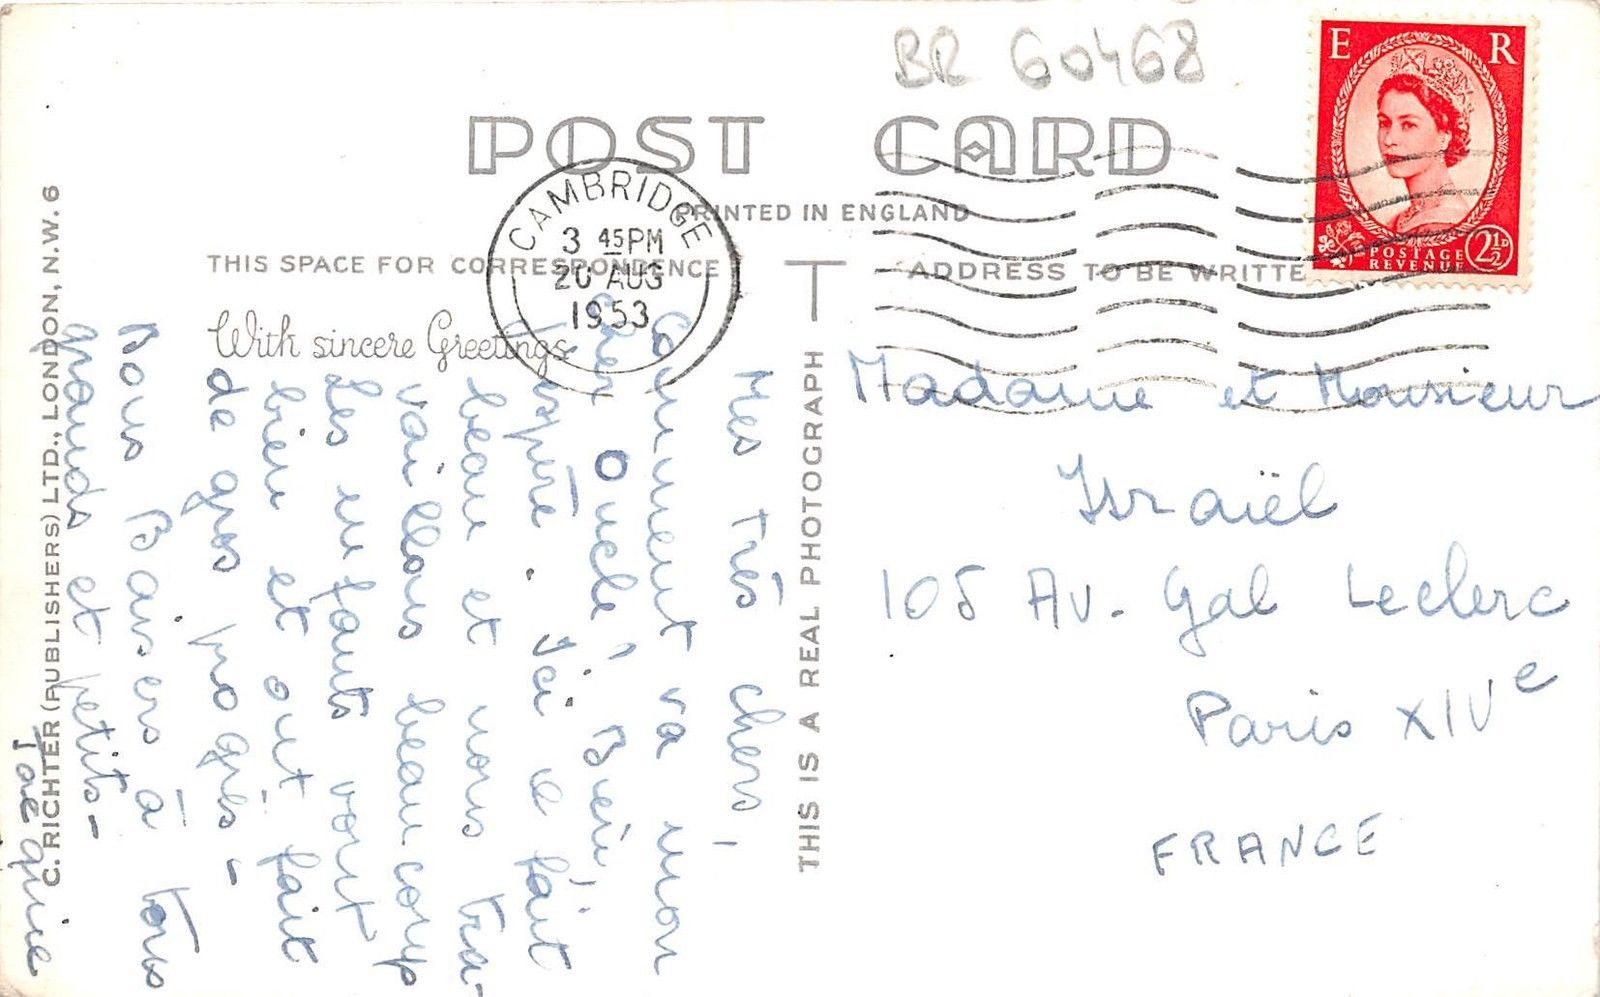 BR 60468
POST CARD
PRINTED IN ENGLAND
THIS SPACE FOR CORRESPONDENCE
ADDRESS TO BE WRITTE
With sincere Greetings
CAMBRIDGE
3 45PM
20 AUG
1953
E R
POSTAGE
REVENUE
2½D
THIS IS A REAL PHOTOGRAPH
C. RICHTER (PUBLISHERS) LTD., LONDON, N.W. 6
Mes très chers,
Comment va mon
cher Oncle? Bien,
j'espère. Ici il fait
beau et nous tra-
vaillons beaucoup
Les enfants vont
bien et ont fait
de gros progrès -
Bons Baisers à tous
grands et petits -
Madame et Monsieur
Israël
105 Av. Gal Leclerc
Paris XIVe
FRANCE